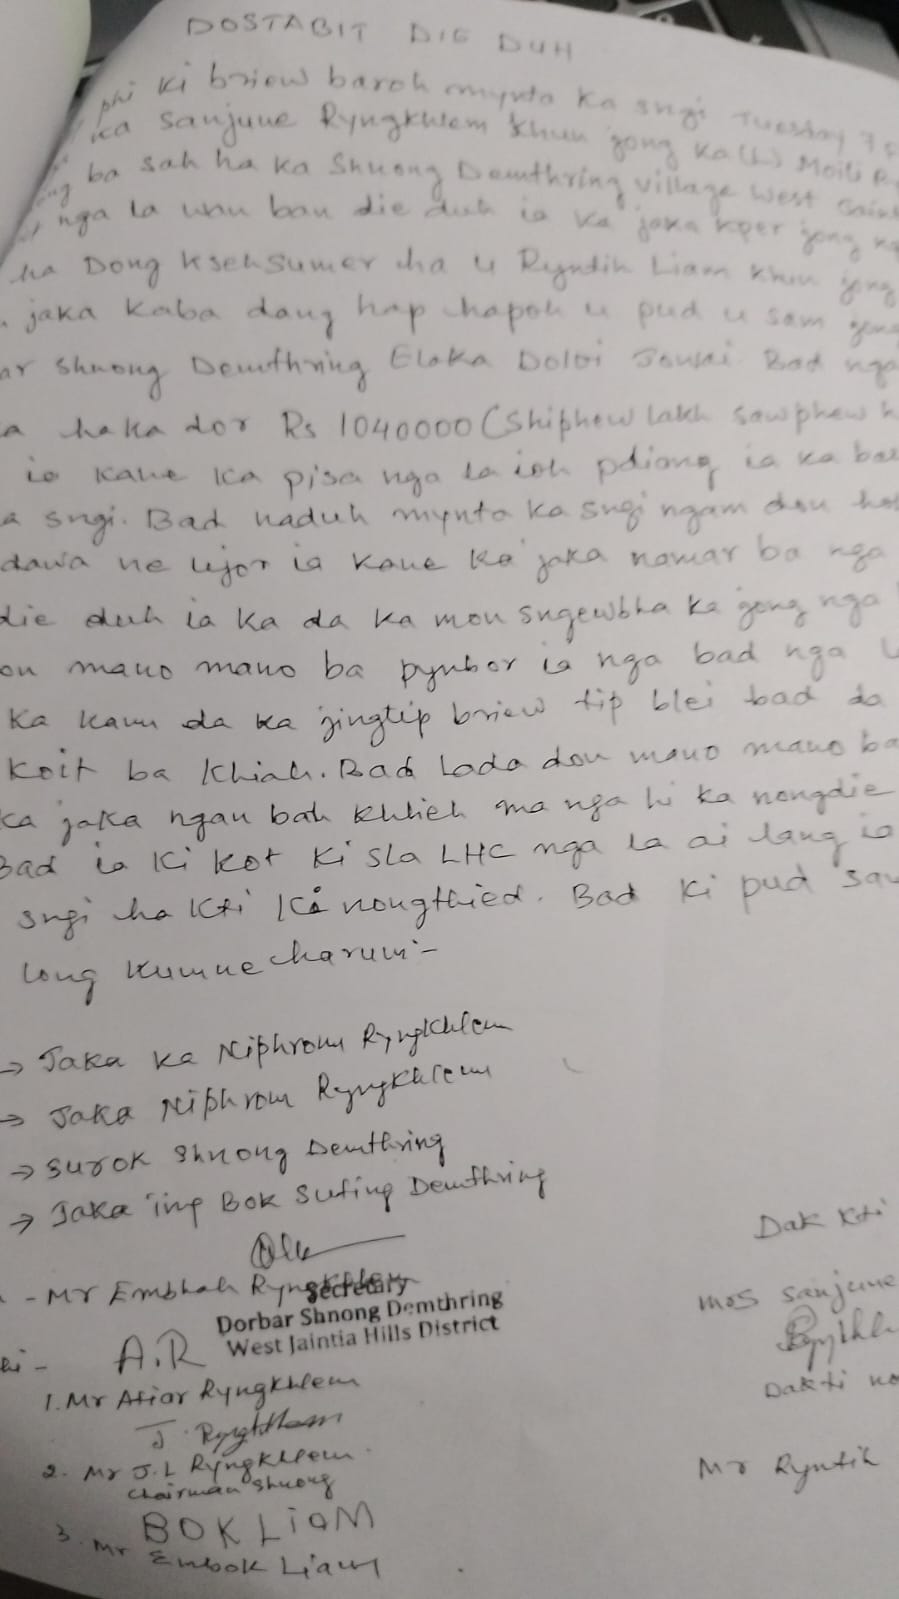 DOSTABIT DIE DUH
phi ki briew baroh mynta ka sngi Tuesday 7
ka Sanjune Ryngkhlem khun jong ka (L) Moili
ba sah ha ka Shnong Demthring village West
nga la wan ban die duh ia ka jaka kper jong
ha Dong Ksehsumer ha u Ryntih Liam khun jong
jaka kaba dang hap hapoh u pud u sam jong
shnong Demthring Elaka Doloi Jowai Bad nga
ha ka dor Rs 1040000 (Shiphew lakh sawphew
ia kane ka pisa nga la ioh pdiang ia ka
sngi. Bad naduh mynta ka sngi ngam don
dawa ne ujor ia kane ka jaka namar ba nga
die duh ia ka da ka mon sngewbha ka jong nga
mano mano ba pynbor ia nga bad nga
ka kam da ka jingtip briew tip blei bad da
koit ba khiah. Bad lada don mano mano ba
ka jaka ngan bah khlieh ma nga hi ka nongdie
Bad ia ki kot ki sla LHC nga la ai lang ia
sngi ha kti ka nongthied. Bad ki pud
long kumne harum:-
→ Jaka ka Niphrom Ryngkhlem
→ Jaka Niphrom Ryngkhlem
→ Surok Shnong Demthring
→ Jaka 'ing Bok Suting Demthring
- Mr Embhah Ryngkhlem
Secretary
Dorbar Shnong Demthring
West Jaintia Hills District
A.R
1. Mr Atiar Ryngkhlem
2. Mr J.L Ryngkhlem
Chairman Shnong
BOK LiAM
3. Mr Embok Liam
Dak kti
Mos Sanjune
Dakti
Mr Ryntih